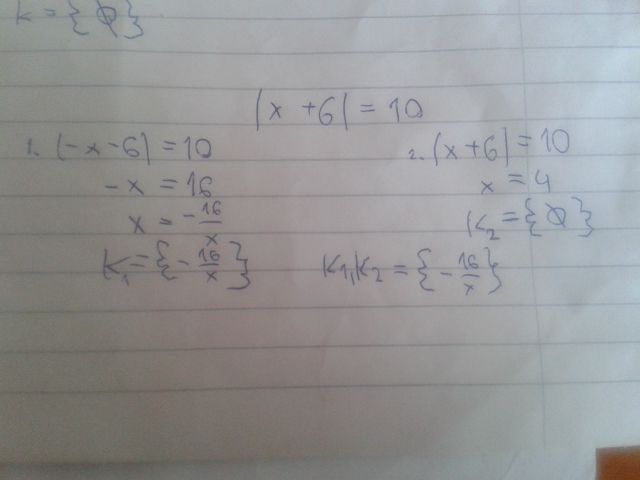 K = {∅}
|x + 6| = 10
1. (-x - 6) = 10
-x = 16
x = -16/x
K₁ = {-16/x}
2. (x + 6) = 10
x = 4
K₂ = {∅}
K₁,K₂ = {-16/x}